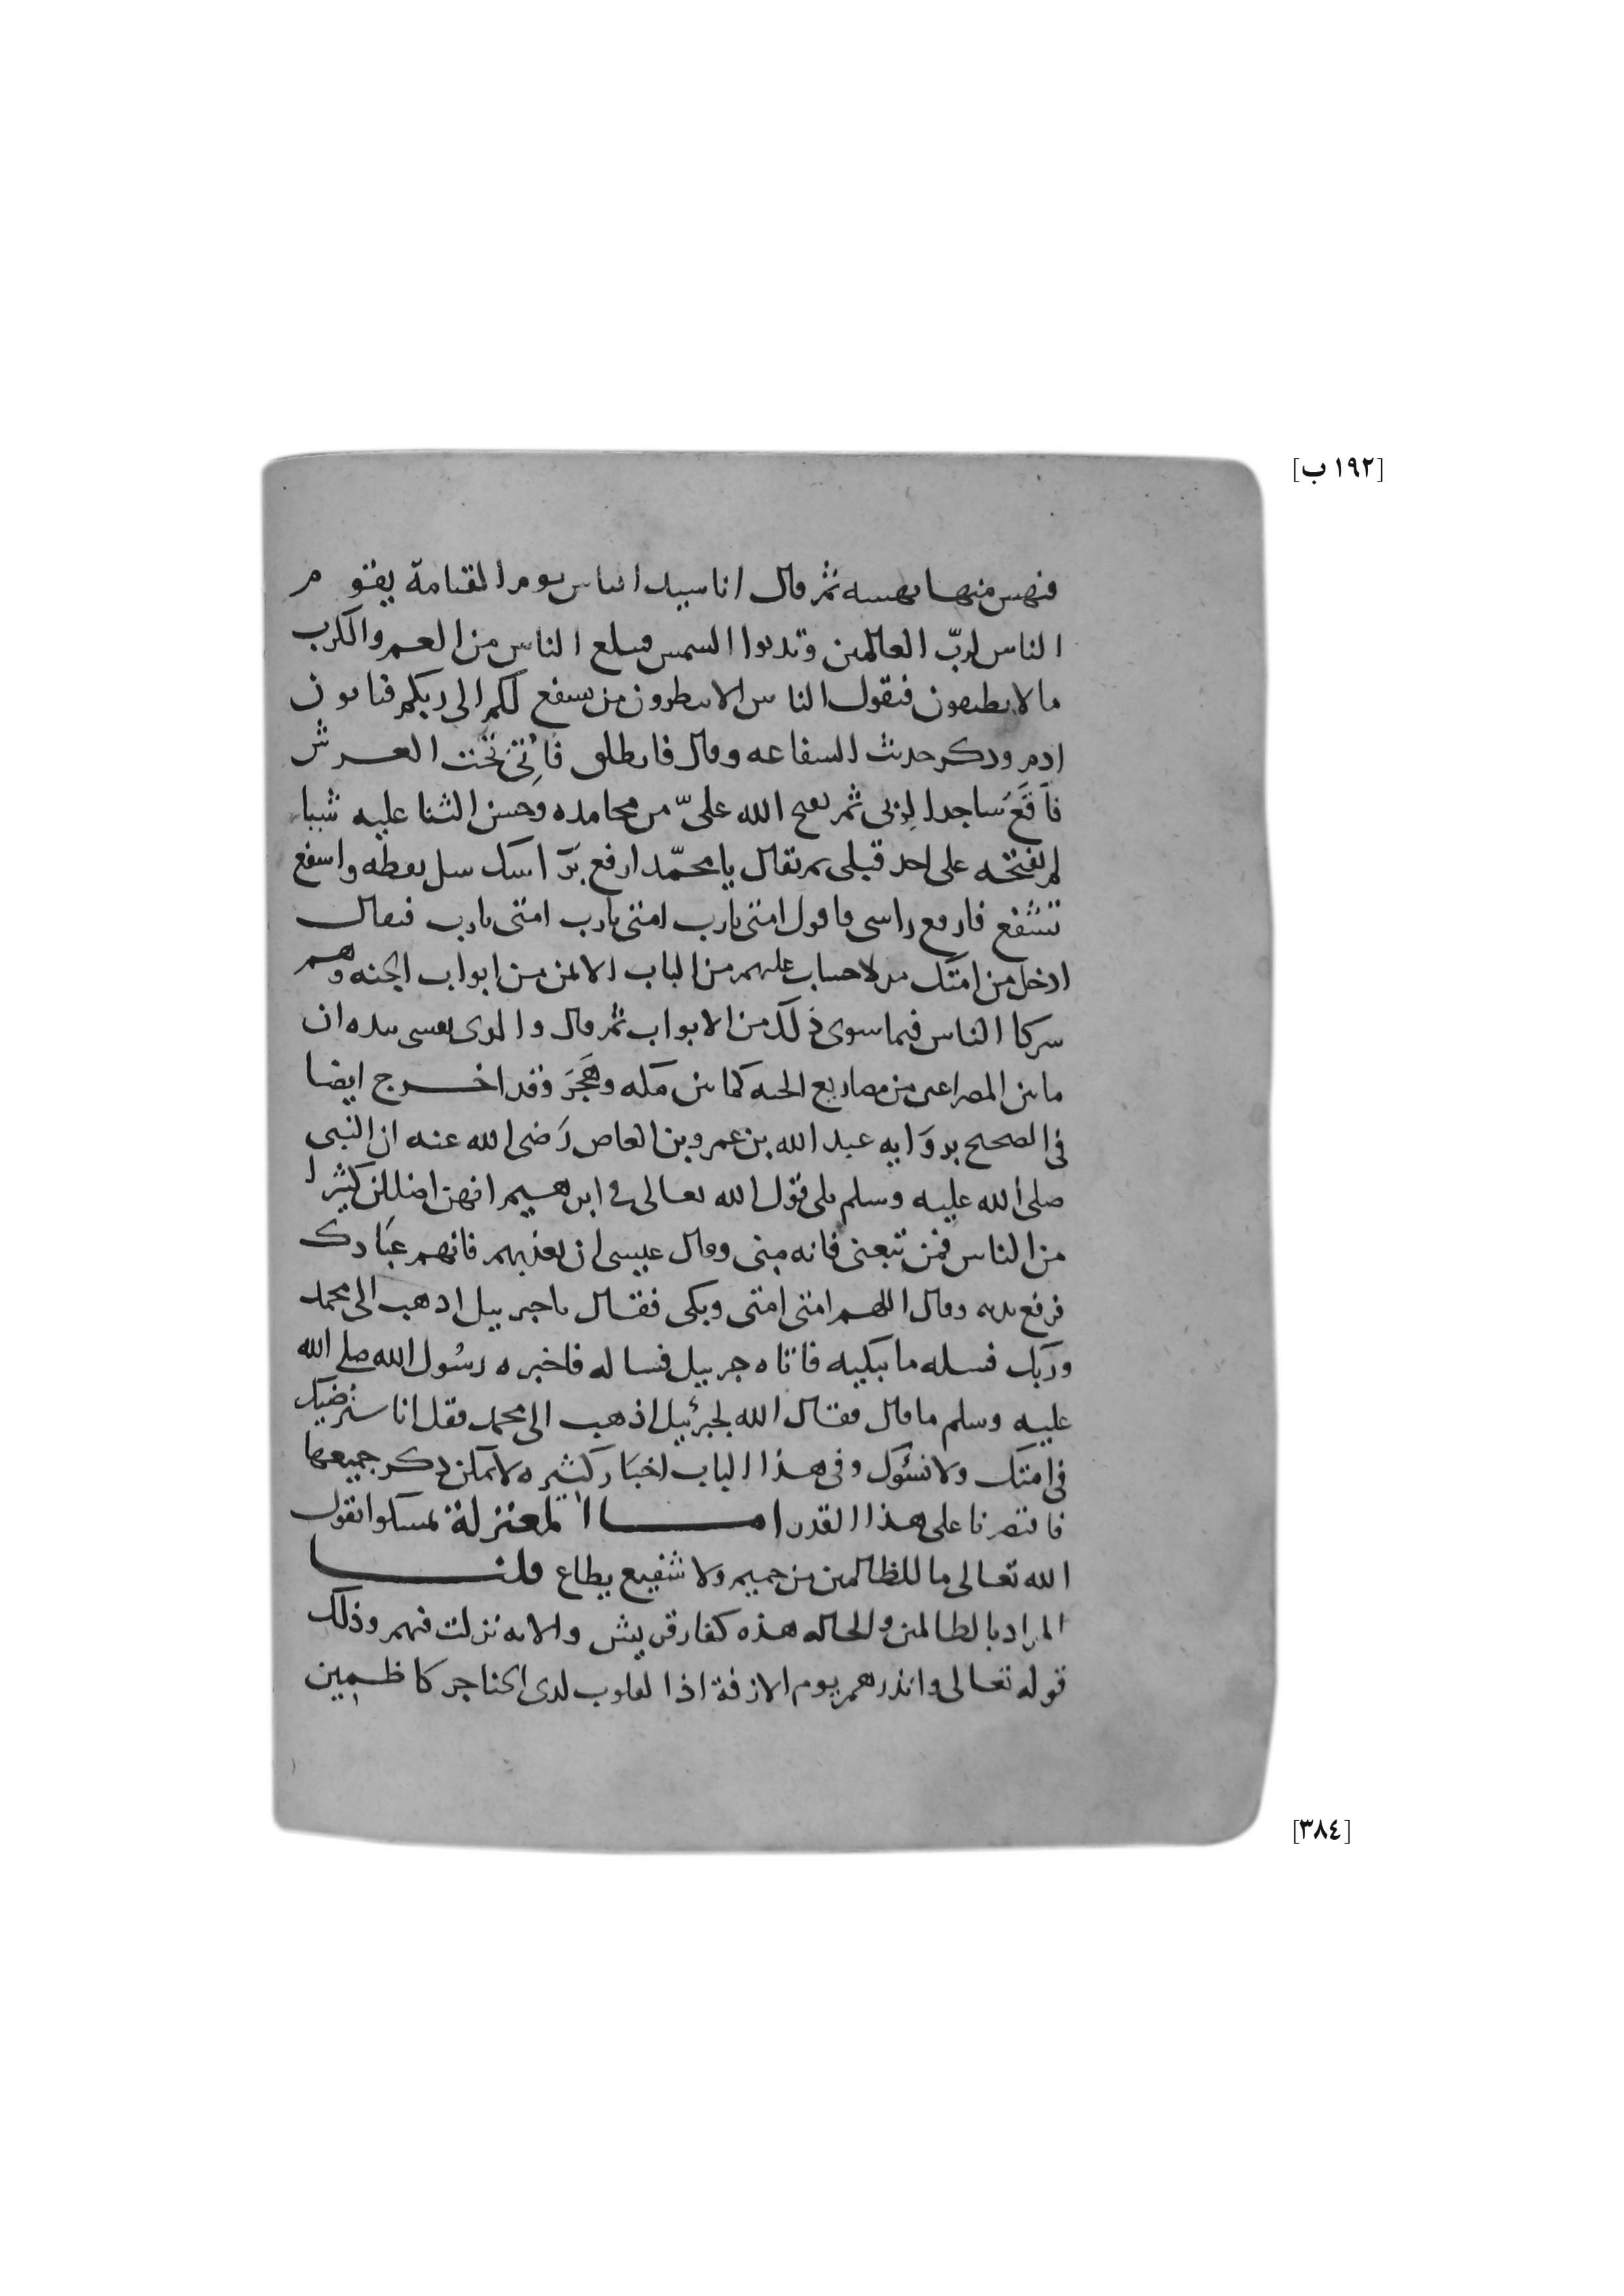 [١٩٢ ب]
فنهس منها نهسه ثم قال انا سيد الناس يوم القيامة يقوم
الناس لرب العالمين وتدنوا الشمس فيبلغ الناس من الغم والكرب
ما لا يطيقون فيقول الناس الا تنظرون من يشفع لكم الى ربكم فياتون
ادم وذكر حديث الشفاعه وقال فانطلق فآتي تحت العرش
فأقَعُ ساجدا لربي ثم يفتح الله عليّ من محامده وحسن الثنا عليه شيا
لم يفتحه على احد قبلي ثم يقال يا محمّد ارفع رَاسك سل تعطه واشفع
تشفع فارفع راسي فاقول امتي يارب امتي يارب امتي يارب فيقال
ادخل من امتك من لا حساب عليهم من الباب الايمن من ابواب الجنه وهم
شركا الناس فيما سوى ذَلك من الابواب ثم قال والذي نفسي بيده ان
ما بين المصراعين من مصاريع الجنه كما بين مكه وهَجَر وقد اخرج ايضا
في الصحيح بروَايه عبد الله بن عمرو بن العاص رَضي الله عنه ان النبي
صلى الله عليه وسلم تلى قول الله تعالى في ابرهيم انهن اضللن كثيرا
من الناس فمن تبعني فانه مني وقال عيسى ان تعذبهم فانهم عبَادك
فرفع يديه وقال اللهم امتي امتي وبكى فقال يا جبرييل اذهب الى محمد
وربك فسله ما يبكيه فاتاه جبرييل فساله فاخبره رسُول الله صلى الله
عليه وسلم ما قال فقال الله لجبرئيل اذهب الى محمد فقل انا سنرضيك
في امتك ولا نسؤك وفي هذا الباب اخبَار كثيره لا يمكن ذكر جميعها
فاقتصرنا على هذا القدر اما المعتزلة تمسكوا بقول
الله تعالى ما للظالمين من حميم ولا شفيع يطاع قلنا
المراد بالظالمين والحاله هذه كفار قريش والايه نزلت فيهم وذلك
قوله تعالى وانذرهم يوم الازفة اذ القلوب لدى الحناجر كاظمين
[٣٨٤]